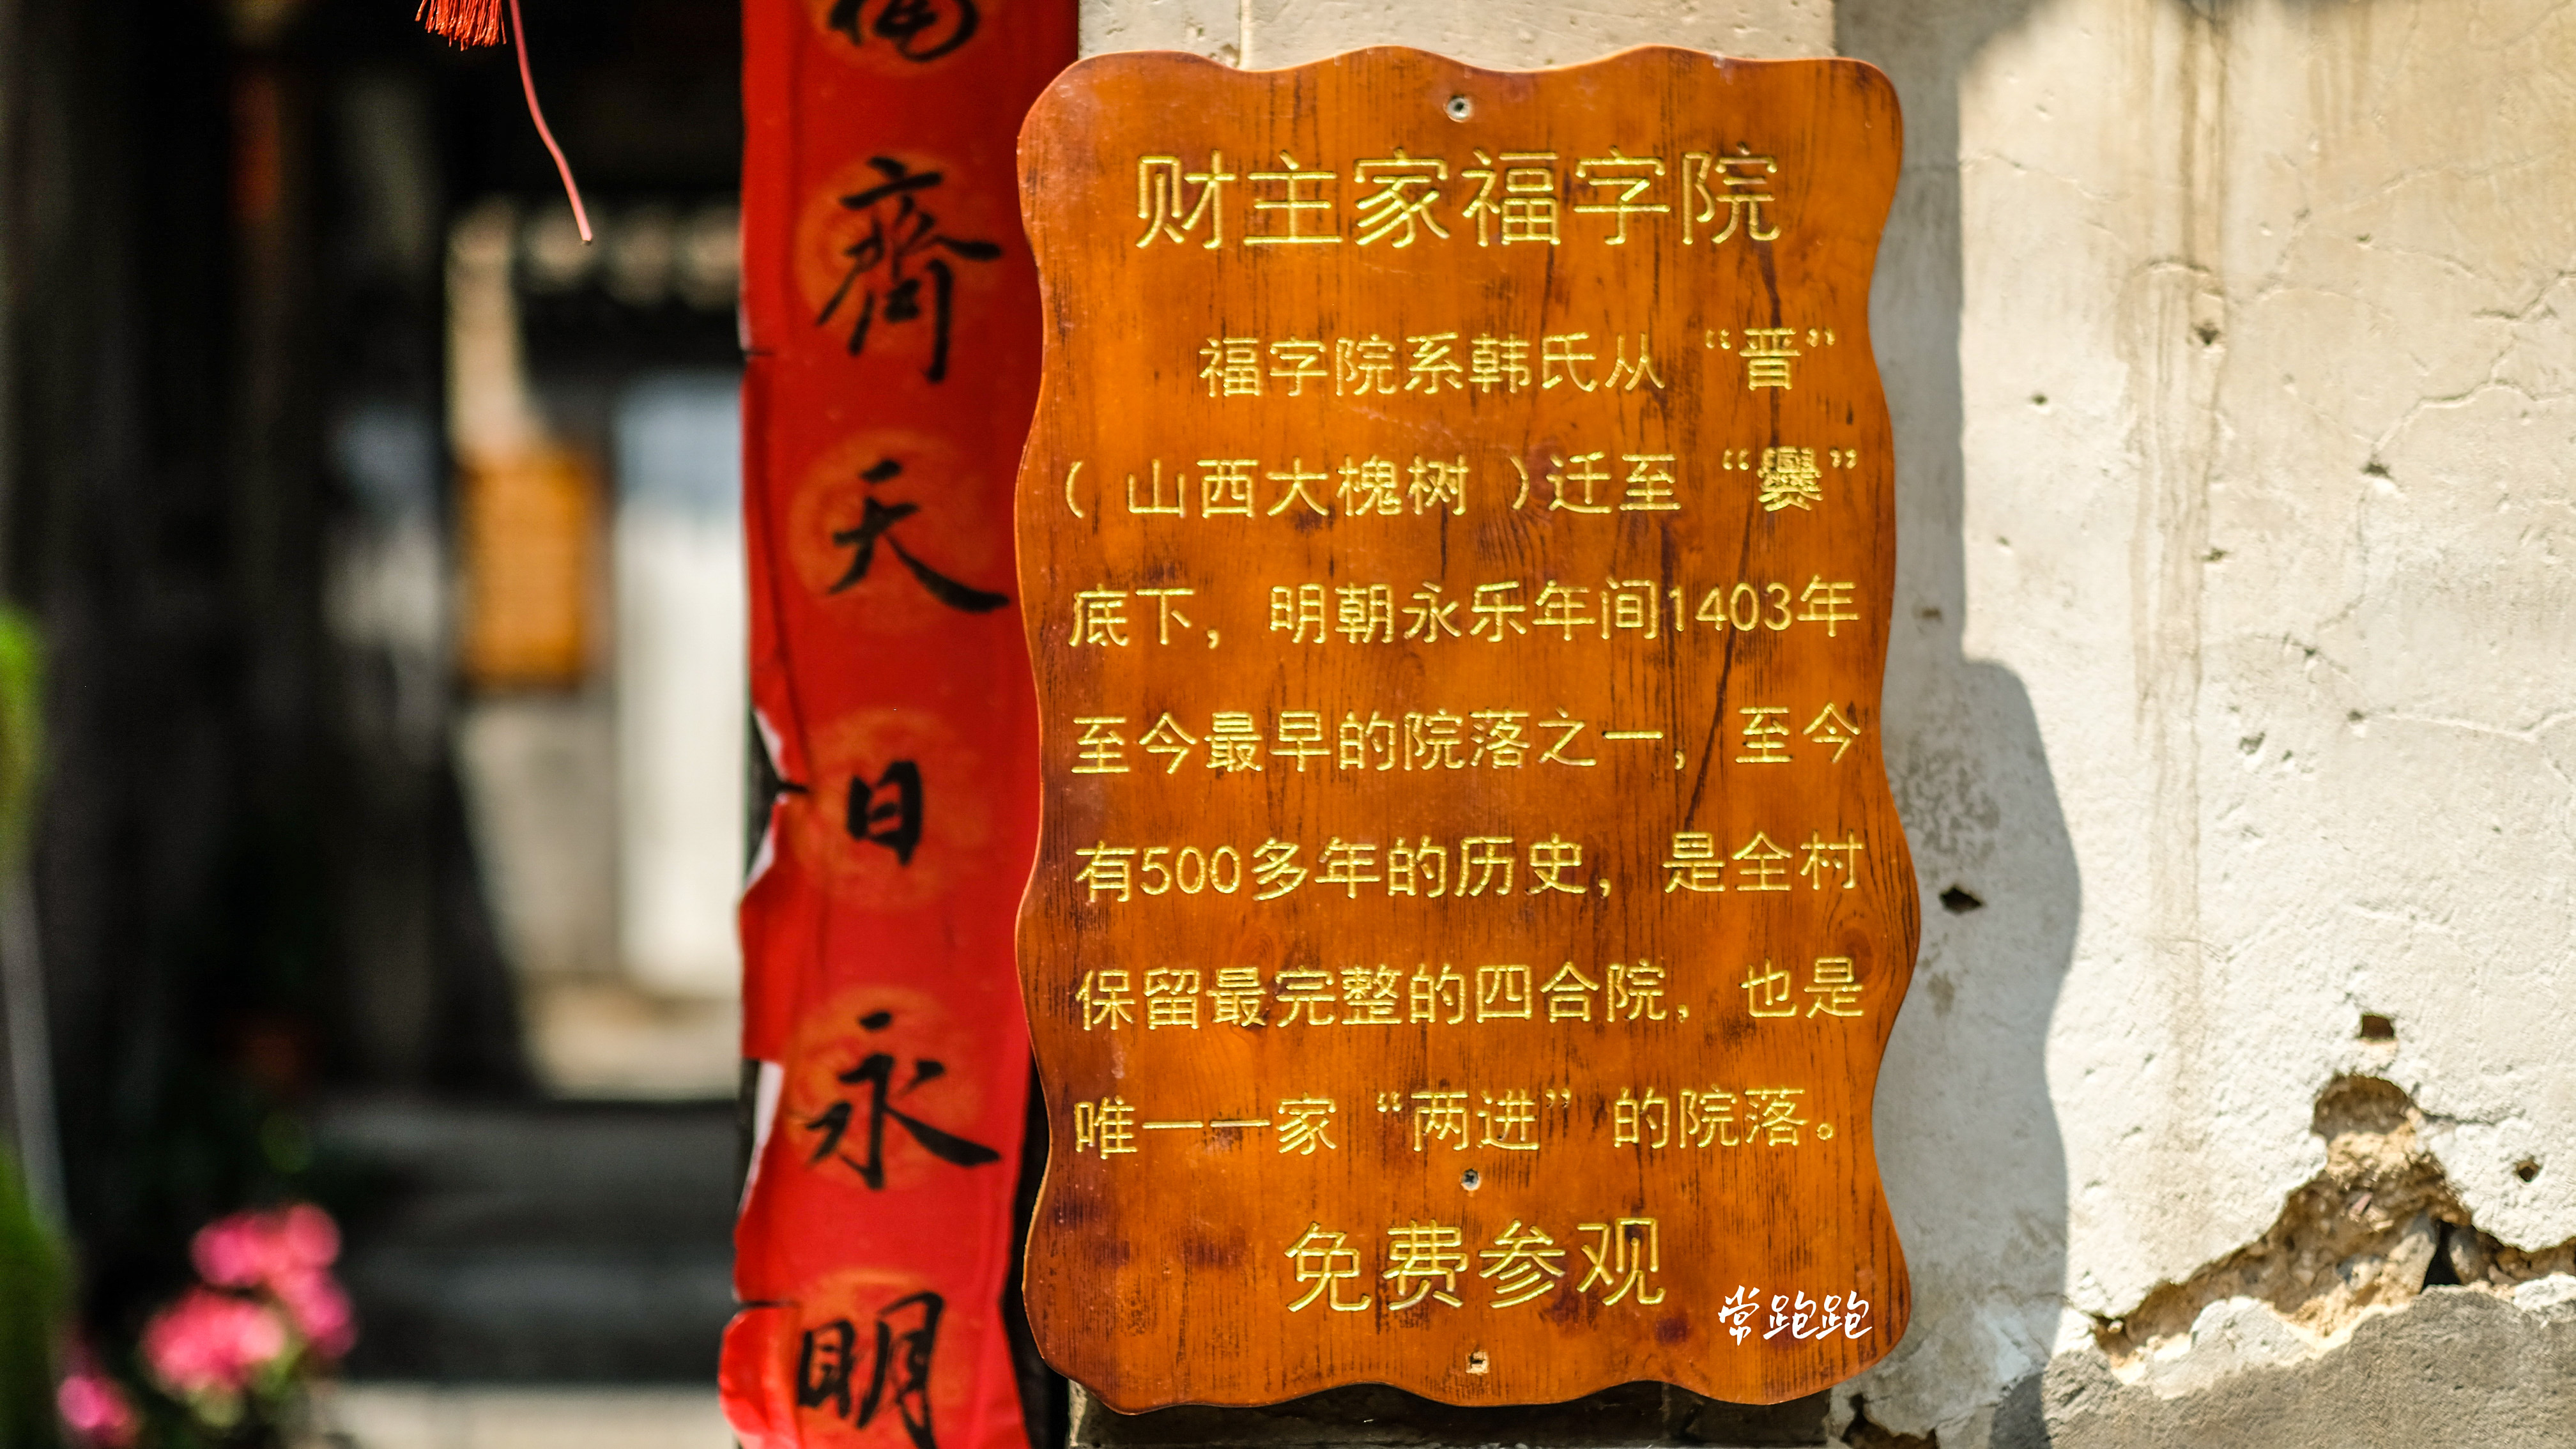 财主家福字院
福字院系韩氏从“晋”
（山西大槐树）迁至“爨”
底下，明朝永乐年间1403年
至今最早的院落之一，至今
有500多年的历史，是全村
保留最完整的四合院，也是
唯一一家“两进”的院落。
免费参观
常跑跑
福齊天日永明